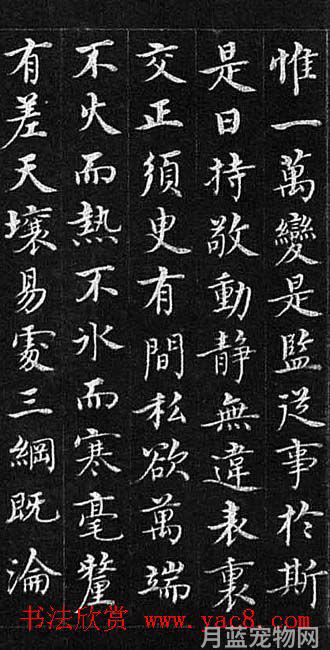 惟一萬變是監從事於斯
是日持敬動靜無違表裏
交正須臾有間私欲萬端
不火而熱不氷而寒毫釐
有差天壤易處三綱既淪
书法欣赏 www.yac8.com
月蓝宠物网